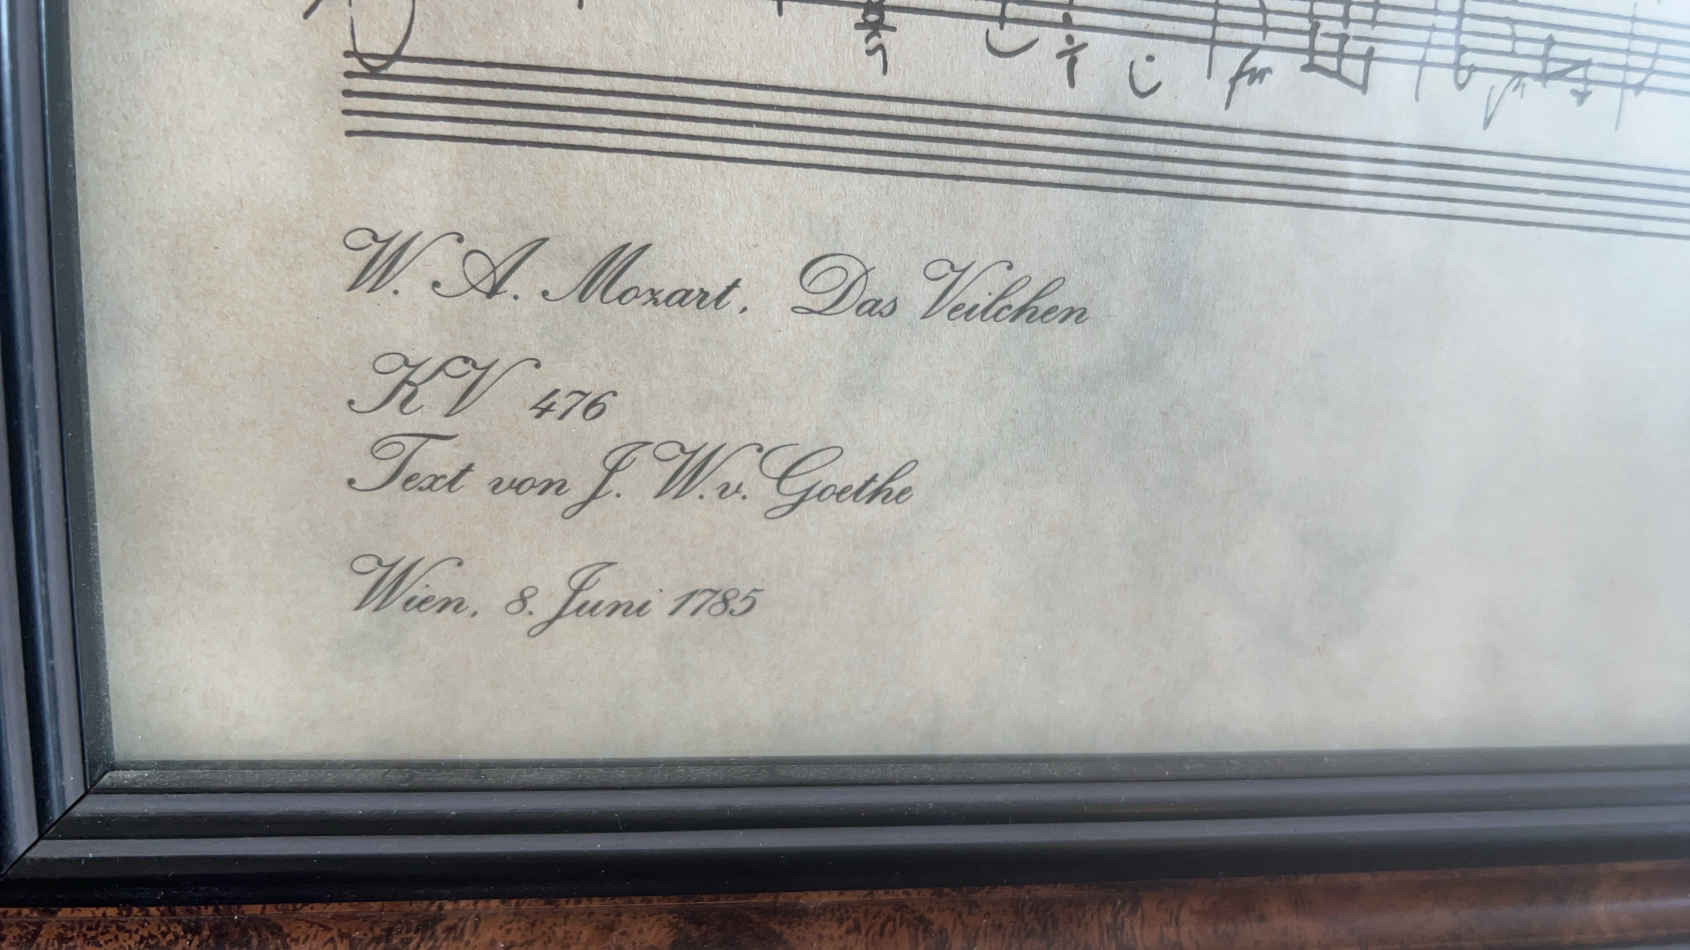 W. A. Mozart. Das Veilchen
KV 476
Text von J. W. v. Goethe
Wien. 8. Juni 1785